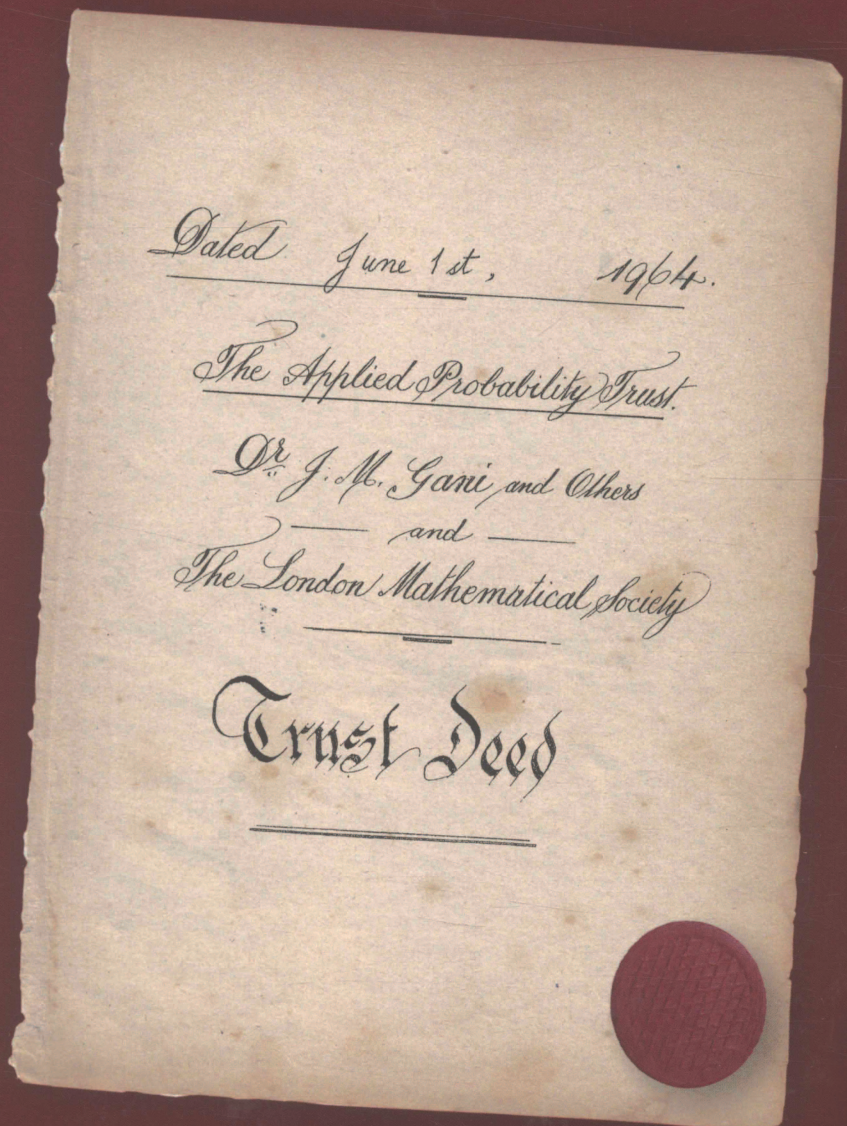 Dated June 1st, 1964.
The Applied Probability Trust.
Dr. J. M. Gani and Others
and
The London Mathematical Society
Trust Deed